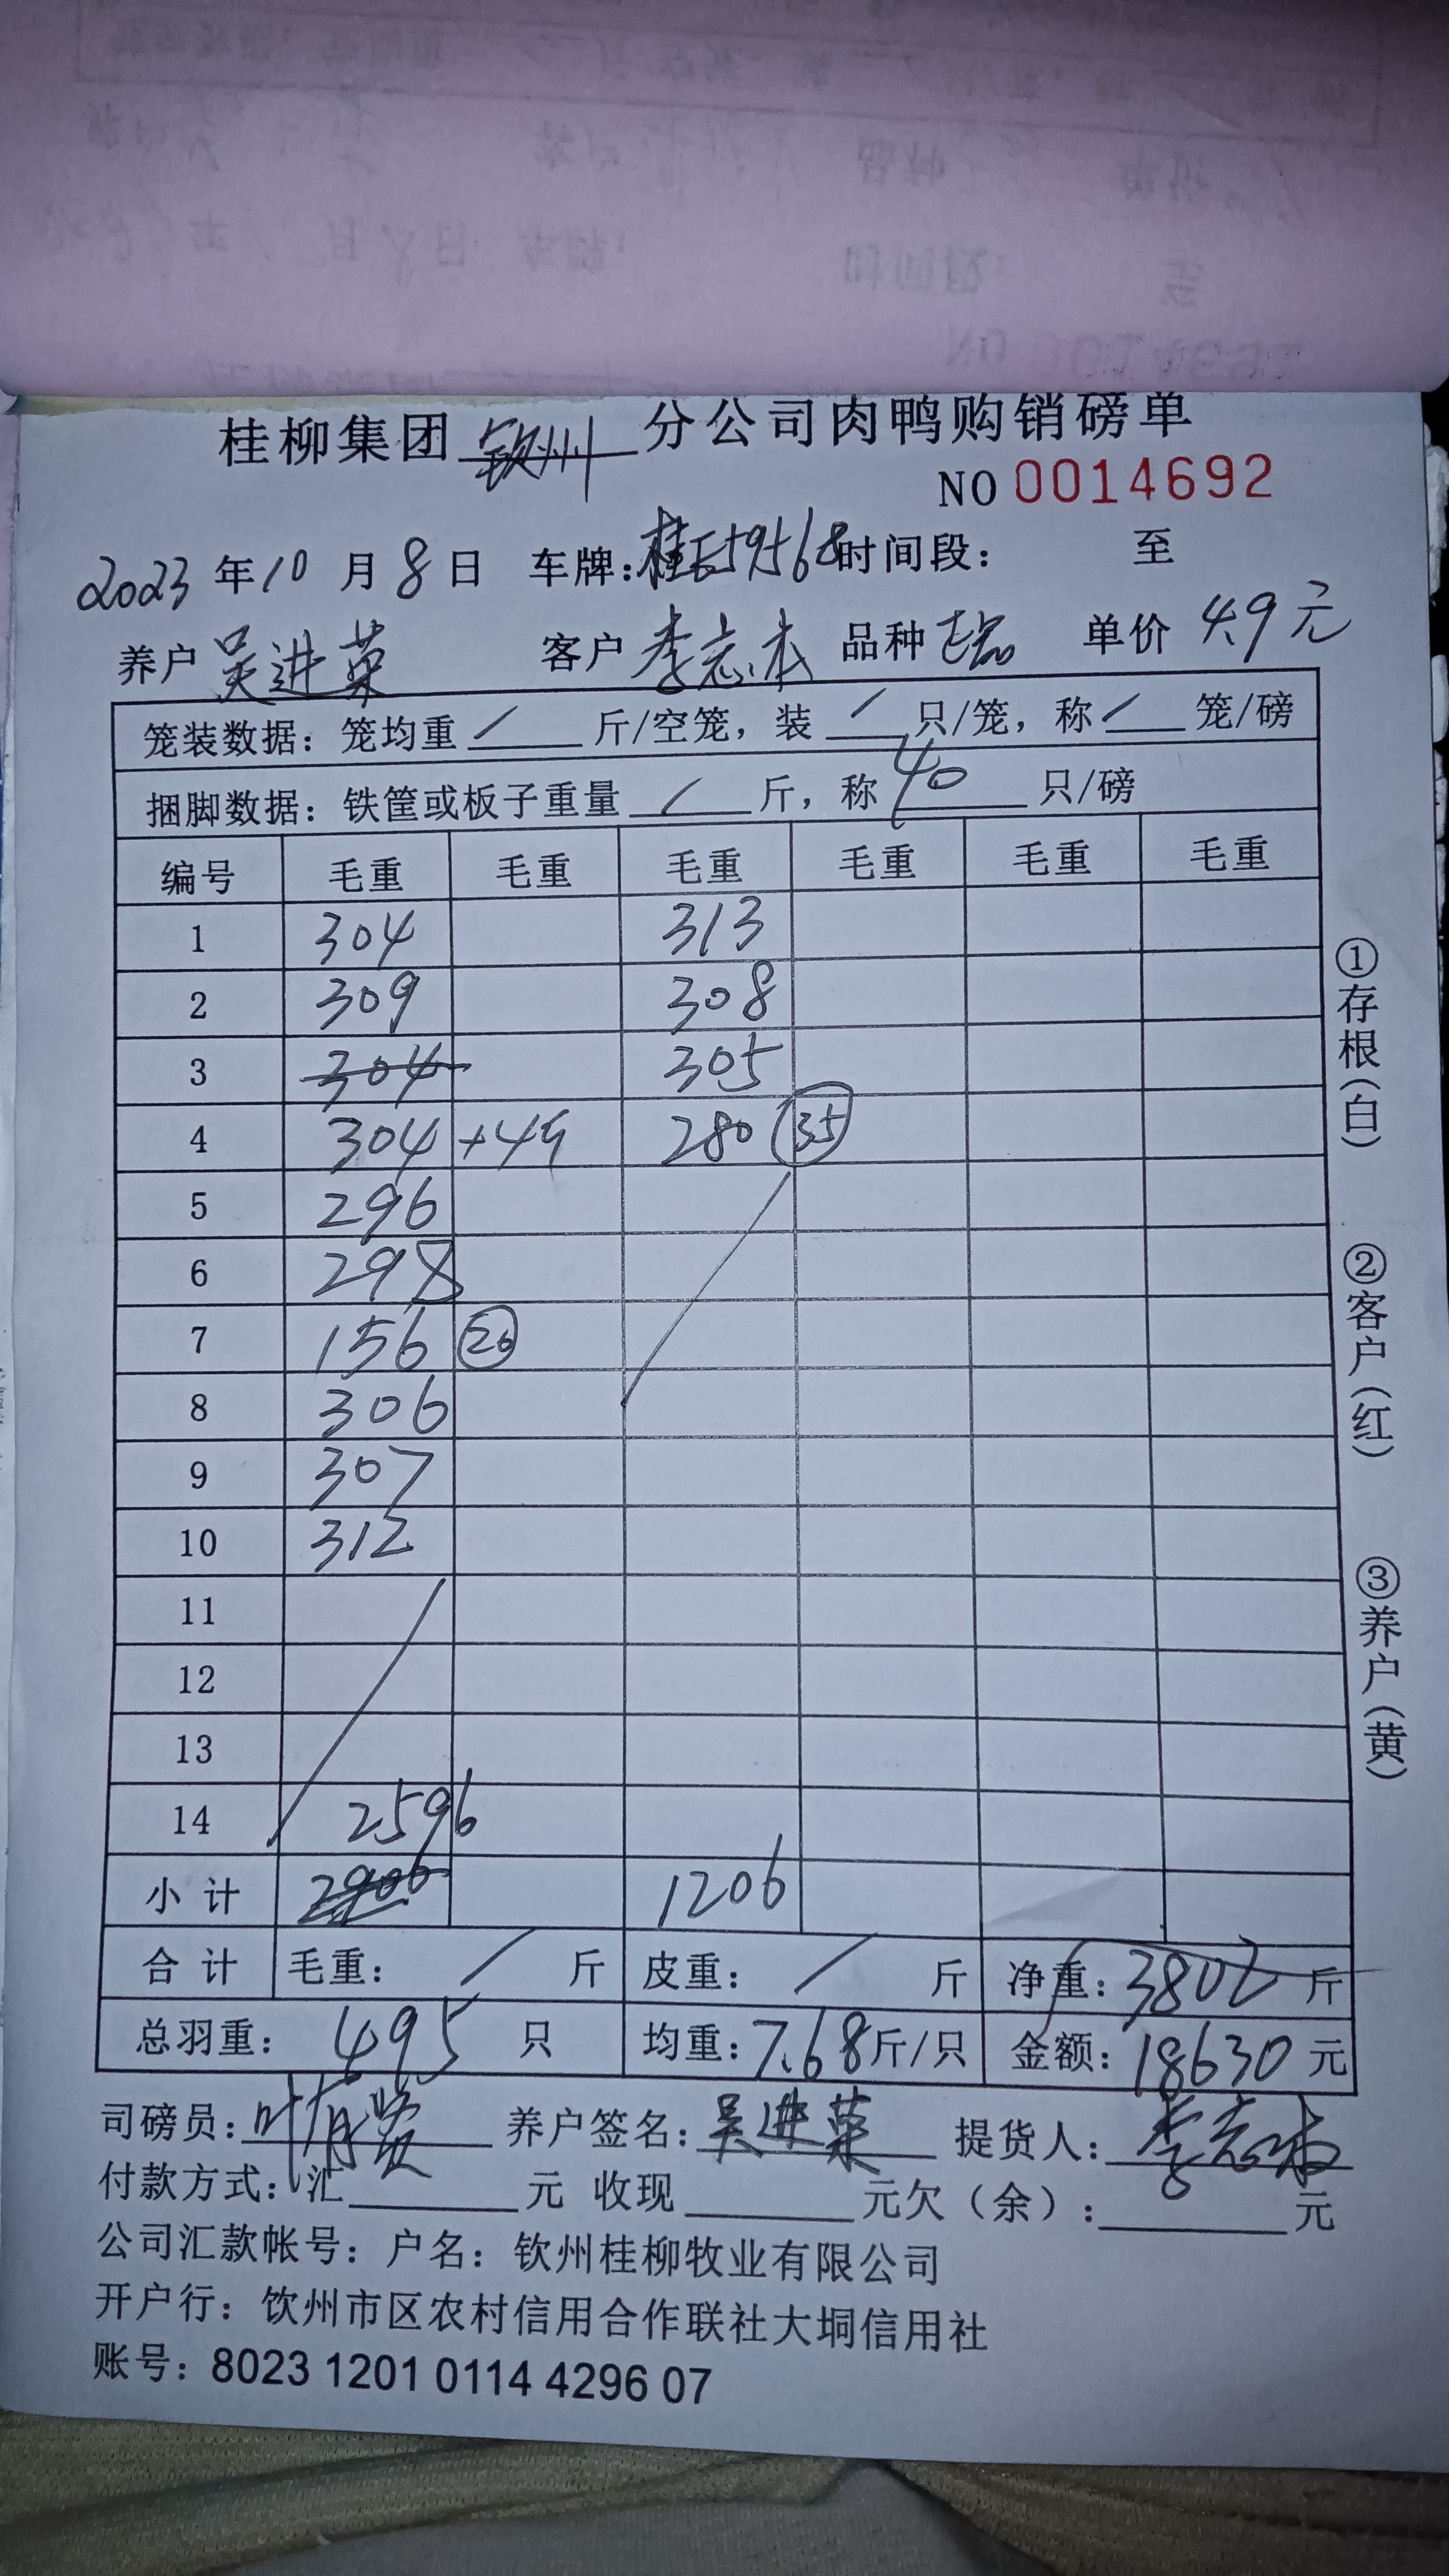 桂柳集团 钦州 分公司肉鸭购销磅单
NO 0014692
2023 年 10 月 8 日 车牌：桂E59568 时间段： 至
养户 吴进菜 客户 李志本 品种 单价 4.9元
笼装数据：笼均重 / 斤/空笼，装 / 只/笼，称 / 笼/磅
捆脚数据：铁筐或板子重量 / 斤，称 40 只/磅
编号 毛重 毛重 毛重 毛重 毛重 毛重
1 304 313
2 309 308
3 304 305
4 304 +4 280 35
5 296
6 298
7 156 20
8 306
9 307
10 312
11
12
13
14 2596
小计 2906 1206
合计 毛重： / 斤 皮重： / 斤 净重：3802 斤
总羽重： 495 只 均重：7.68斤/只 金额：18630 元
司磅员： 养户签名：吴进菜 提货人：李志本
付款方式：汇 元 收现 元欠（余）： 元
公司汇款帐号：户名：钦州桂柳牧业有限公司
开户行：钦州市区农村信用合作联社大垌信用社
账号：8023 1201 0114 4296 07
①存根（白）
②客户（红）
③养户（黄）